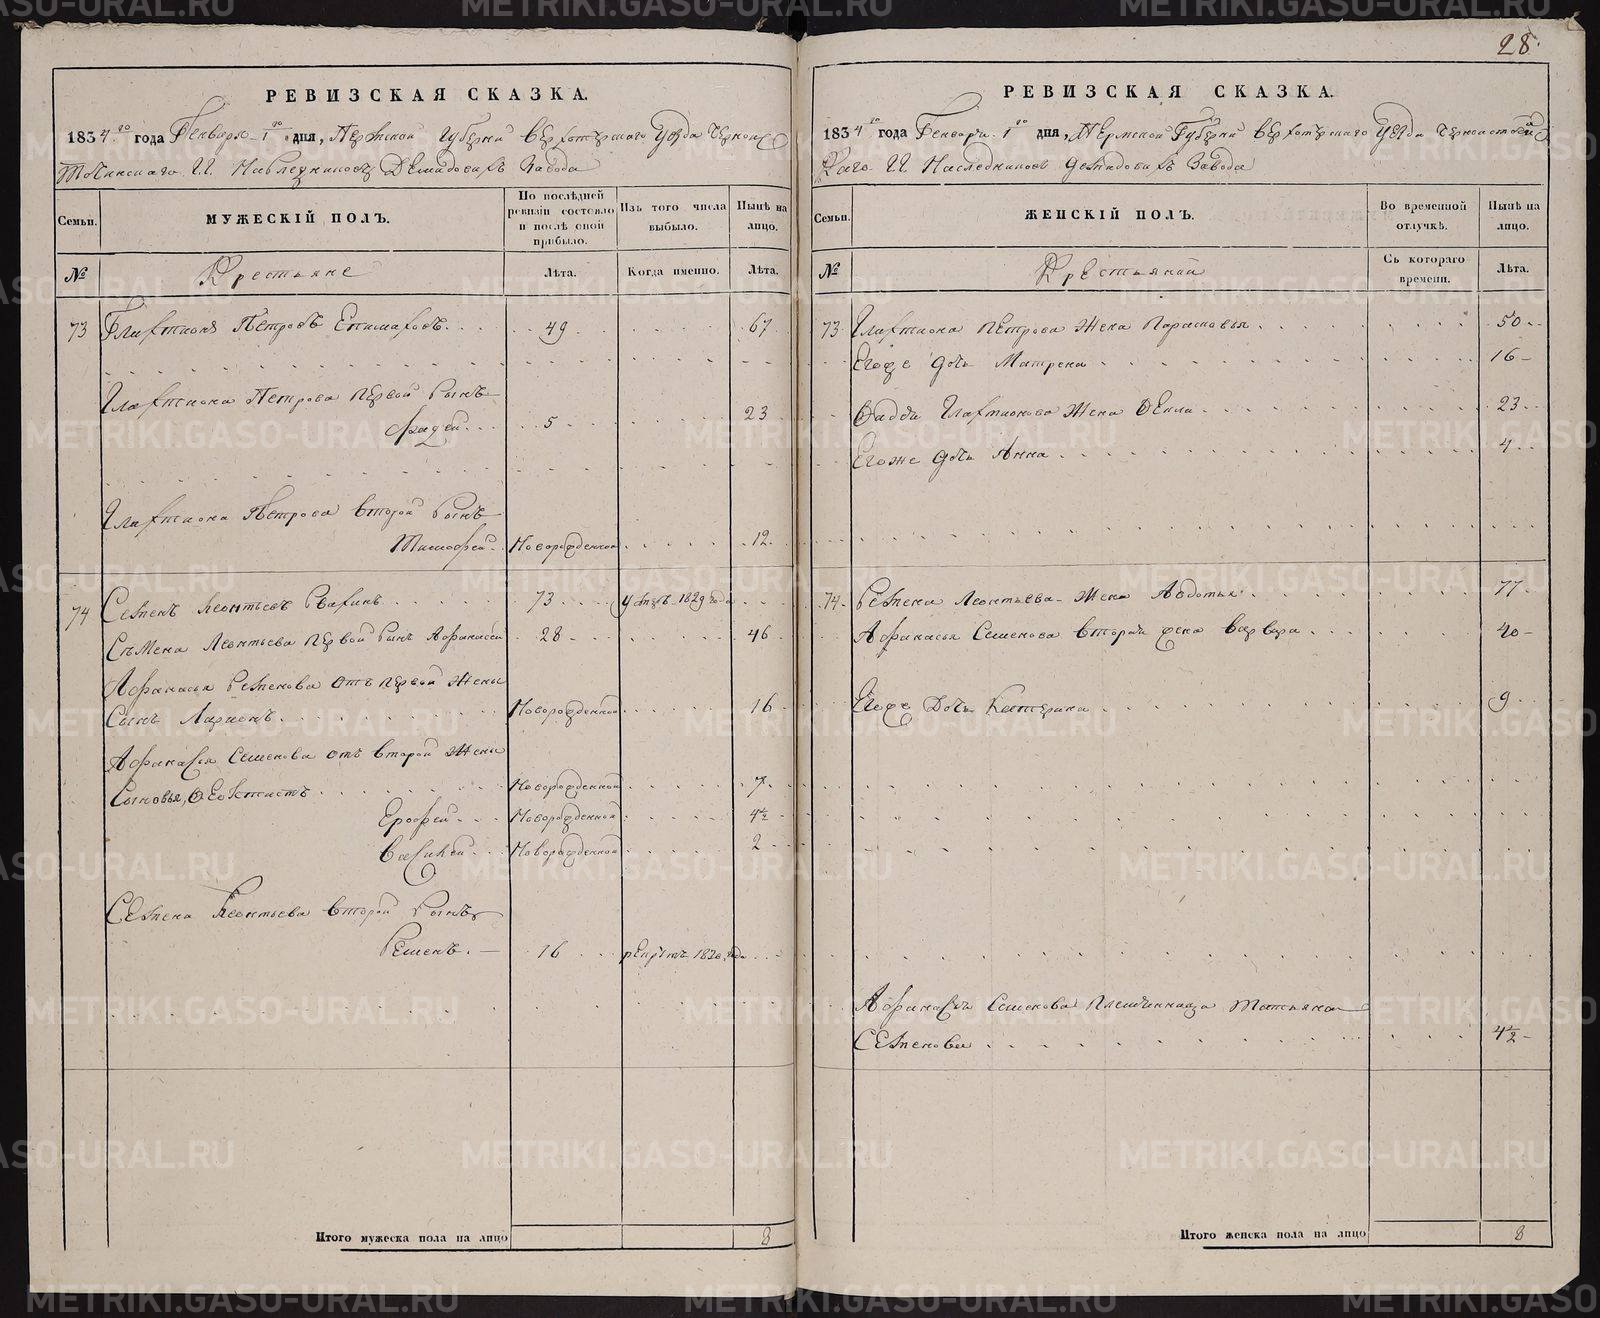 28.
РЕВИЗСКАЯ СКАЗКА.
1834 го года Генваря 1 го дня, Пермской Губернии Верхотурского Уезда Черноис
точинскаго Г.Г. Наследниковъ Демидовыхъ Завода
Семьи.
МУЖЕСКІЙ ПОЛЪ.
По послѣдней ревизіи состояло и послѣ оной прибыло.
Изъ того числа выбыло.
Нынѣ на лицо.
№
Крестьяне
Лѣта.
Когда именно.
Лѣта.
73 Галактионъ Петровъ 49 67
Галактиона Петрова первой сынъ
Фадей 5 23
Галактиона Петрова второй сынъ
Тимофей Новорожденной 12
74 Семенъ Леонтьевъ 73 умръ 1829 года
Семена Леонтьева первой сынъ Афанасей 28 46
Афанасья Семенова отъ первой жены
сынъ Ларионъ Новорожденной 16
Афанасья Семенова отъ второй жены
сыновья, Феоктистъ Новорожденной 7
Ерофей Новорожденной 4½
Василей Новорожденной 2
Семена Леонтьева второй сынъ
Семенъ 16 рекрутъ 1820 года
Итого мужеска пола на лицо 8
РЕВИЗСКАЯ СКАЗКА.
1834 го года Генваря 1 го дня, Пермской Губернии Верхотурского Уезда Черноисточин
скаго Г.Г. Наследниковъ Демидовыхъ Завода
Семьи.
ЖЕНСКІЙ ПОЛЪ.
Во временной отлучкѣ.
Нынѣ на лицо.
№
Крестьянки
Съ котораго времени.
Лѣта.
73 Галактиона Петрова жена Парасковья 50
Егоже дочь Матрена 16
Фаддея Галактионова жена 23
Егоже дочь Анна 4
74 Семена Леонтьева жена Авдотья 77
Афанасья Семенова вторая жена Варвара 40
Егоже дочь Катерина 9
Афанасья Семенова племянница Татьяна
Семенова 4½
Итого женска пола на лицо 8
METRIKI.GASO-URAL.RU